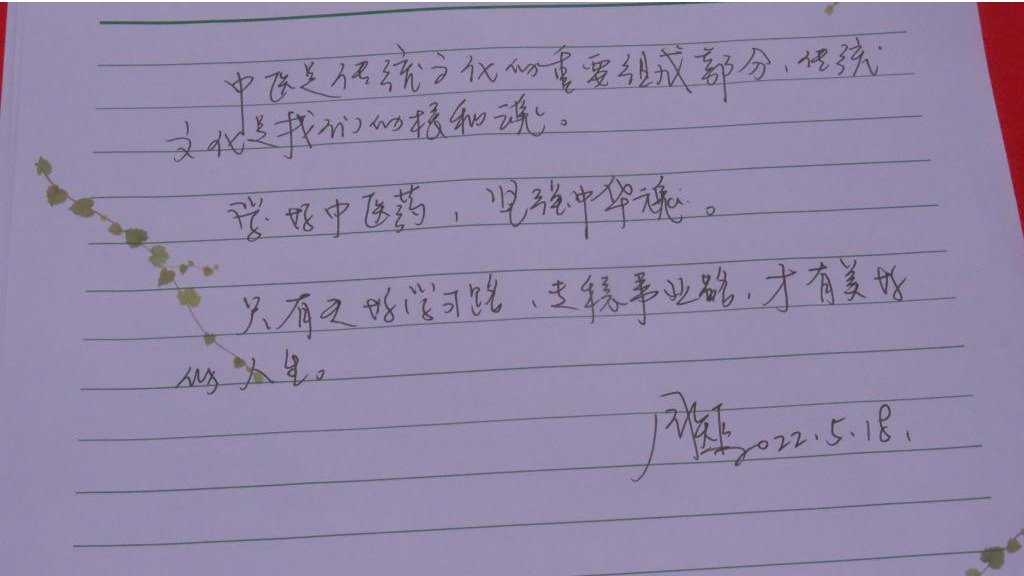 中医是传统文化的重要组成部分,传统
文化是我们的根和魂。
学好中医药,坚强中华魂。
只有走好学习路,走稳事业路,才有美好
的人生。
2022.5.18.